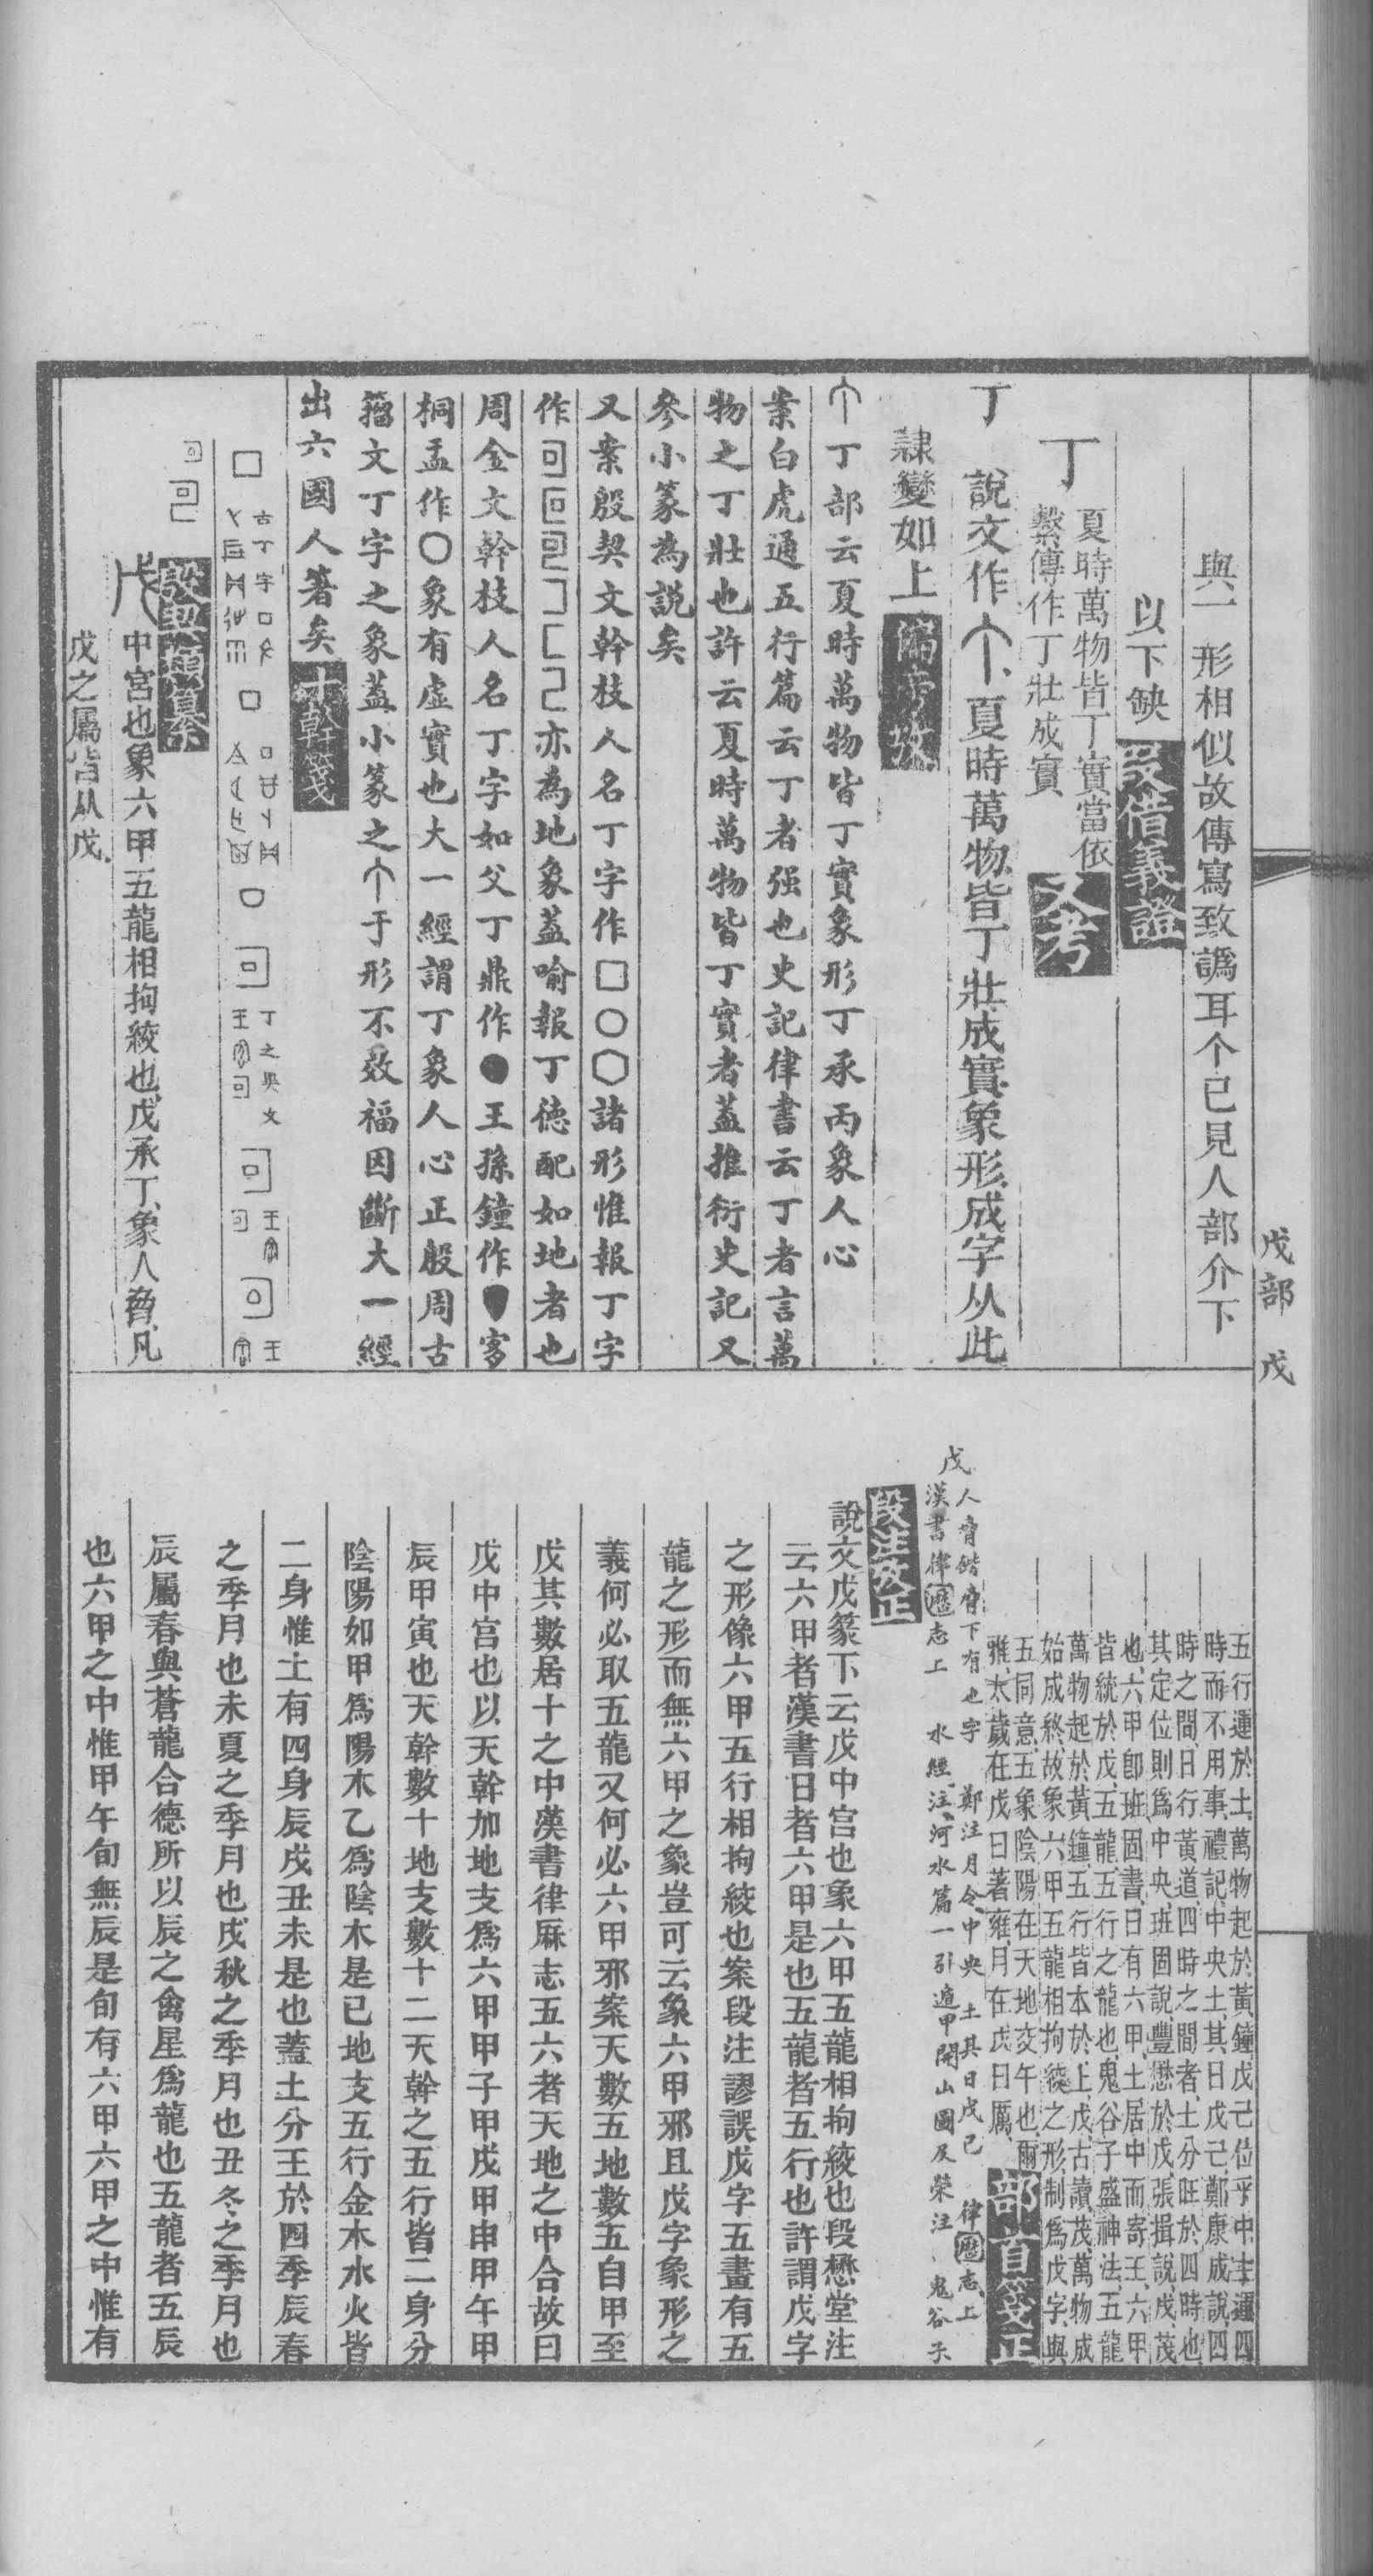 戊部 戊
與丁形相似故傳寫致譌耳个已見人部介下
以下缺 叚借義證
丁 夏時萬物皆丁實當依
繫傳作丁壯成實 又考
丁 說文作个、夏時萬物皆丁壯成實象形成字从此
隸變如上
个丁部云夏時萬物皆丁實象形丁承丙象人心
案白虎通五行篇云丁者强也史記律書云丁者言萬
物之丁壯也許云夏時萬物皆丁實者蓋推衍史記又
參小篆為說矣
又案殷契文幹枝人名丁字作□○諸形惟報丁字
作亦為地象蓋喻報丁德配如地者也
周金文幹枝人名丁字如父丁鼎作●王孫鐘作
桐盂作○象有虛實也大一經謂丁象人心正殷周古
籀文丁字之象蓋小篆之个于形不效福因斷大一經
出六國人著矣 十幹箋
古丁字
丁之異文
殷契類纂
戊 中宮也象六甲五龍相拘絞也戊承丁象人脅凡
戊之屬皆从戊
五行運於土萬物起於黃鐘戊己位乎中主運四
時而不用事禮記中央土其日戊己鄭康成說四
時之間日行黃道四時之間者土分旺於四時也
其定位則爲中央班固說豐楙於戊張揖說戊茂
也六甲卽班固書日有六甲土居中而寄王六甲
皆統於戊五龍五行之龍也鬼谷子盛神法五龍
萬物起於黃鐘五行皆本於上戊古讀茂萬物成
始成終故象六甲五龍相拘絞之形制爲戊字與
五同意五象陰陽在天地交午也爾
雅太歲在戊曰著雍月在戊曰厲 部首箋正
戊 人脅鍇脅下有也字 鄭注月令中央 土其日戊己 律曆志上
漢書律曆志上 水經注河水篇一引遁甲開山圖及榮注 鬼谷子
段注攷正
說文戊篆下云戊中宫也象六甲五龍相拘絞也段懋堂注
云六甲者漢書日者六甲是也五龍者五行也許謂戊字
之形像六甲五行相拘絞也案段注謬誤戊字五畫有五
龍之形而無六甲之象豈可云象六甲邪且戊字象形之
義何必取五龍又何必六甲邪案天數五地數五自甲至
戊其數居十之中漢書律厤志五六者天地之中合故曰
戊中宮也以天幹加地支爲六甲甲子甲戌甲申甲午甲
辰甲寅也天幹數十地支數十二天幹之五行皆二身分
陰陽如甲爲陽木乙爲陰木是已地支五行金木水火皆
二身惟土有四身辰戌丑未是也蓋土分王於四季辰春
之季月也未夏之季月也戌秋之季月也丑冬之季月也
辰屬春與蒼龍合德所以辰之禽星爲龍也五龍者五辰
也六甲之中惟甲午旬無辰是旬有六甲六甲之中惟有